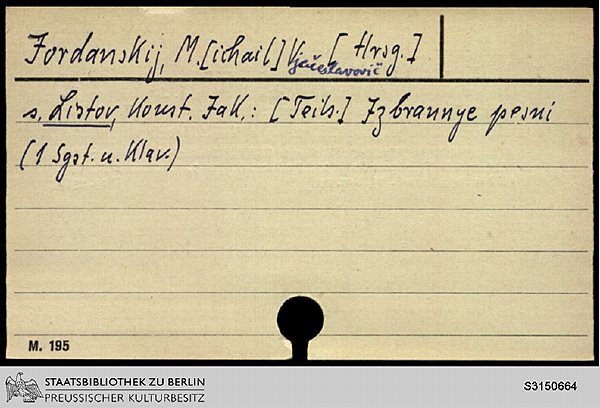 Jordanskij, M.[ichail] Vjačeslavovič [Hrsg.]
s. Listov, Konst. Jak.: [Teils.] Izbrannye pesni
(1 Sgst. u. Klav.)
M. 195
STAATSBIBLIOTHEK ZU BERLIN
PREUSSISCHER KULTURBESITZ
S3150664